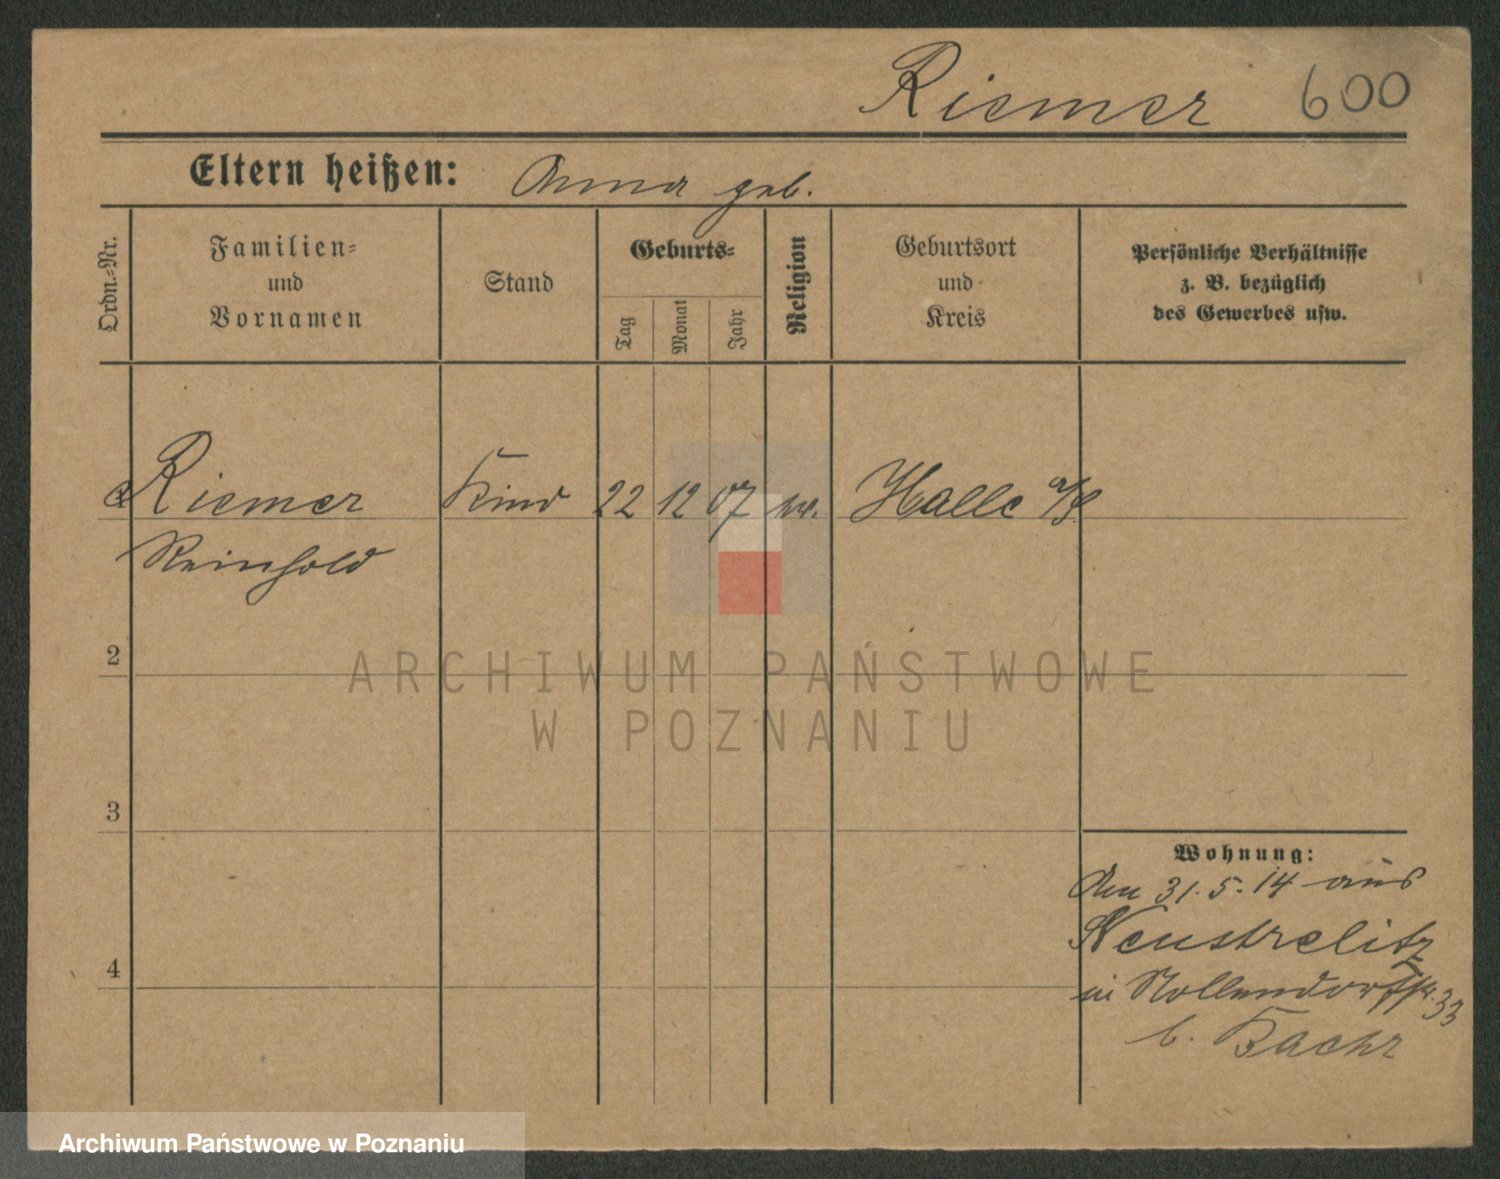 Riemer 600
Eltern heißen: Anna geb.
Ordn.-Nr.
Familien-
und
Vornamen
Stand
Geburts-
Tag
Monat
Jahr
Religion
Geburtsort
und
Kreis
Persönliche Verhältnisse
z. B. bezüglich
des Gewerbes usw.
1 Riemer Kind 22 12 07 Halle a/S
Reinhold
2
ARCHIWUM PAŃSTWOWE
W POZNANIU
3
Wohnung:
Am 31.5.14 aus
Neustrelitz
in Nollendorfstr. 33
b. Bachr
4
Archiwum Państwowe w Poznaniu